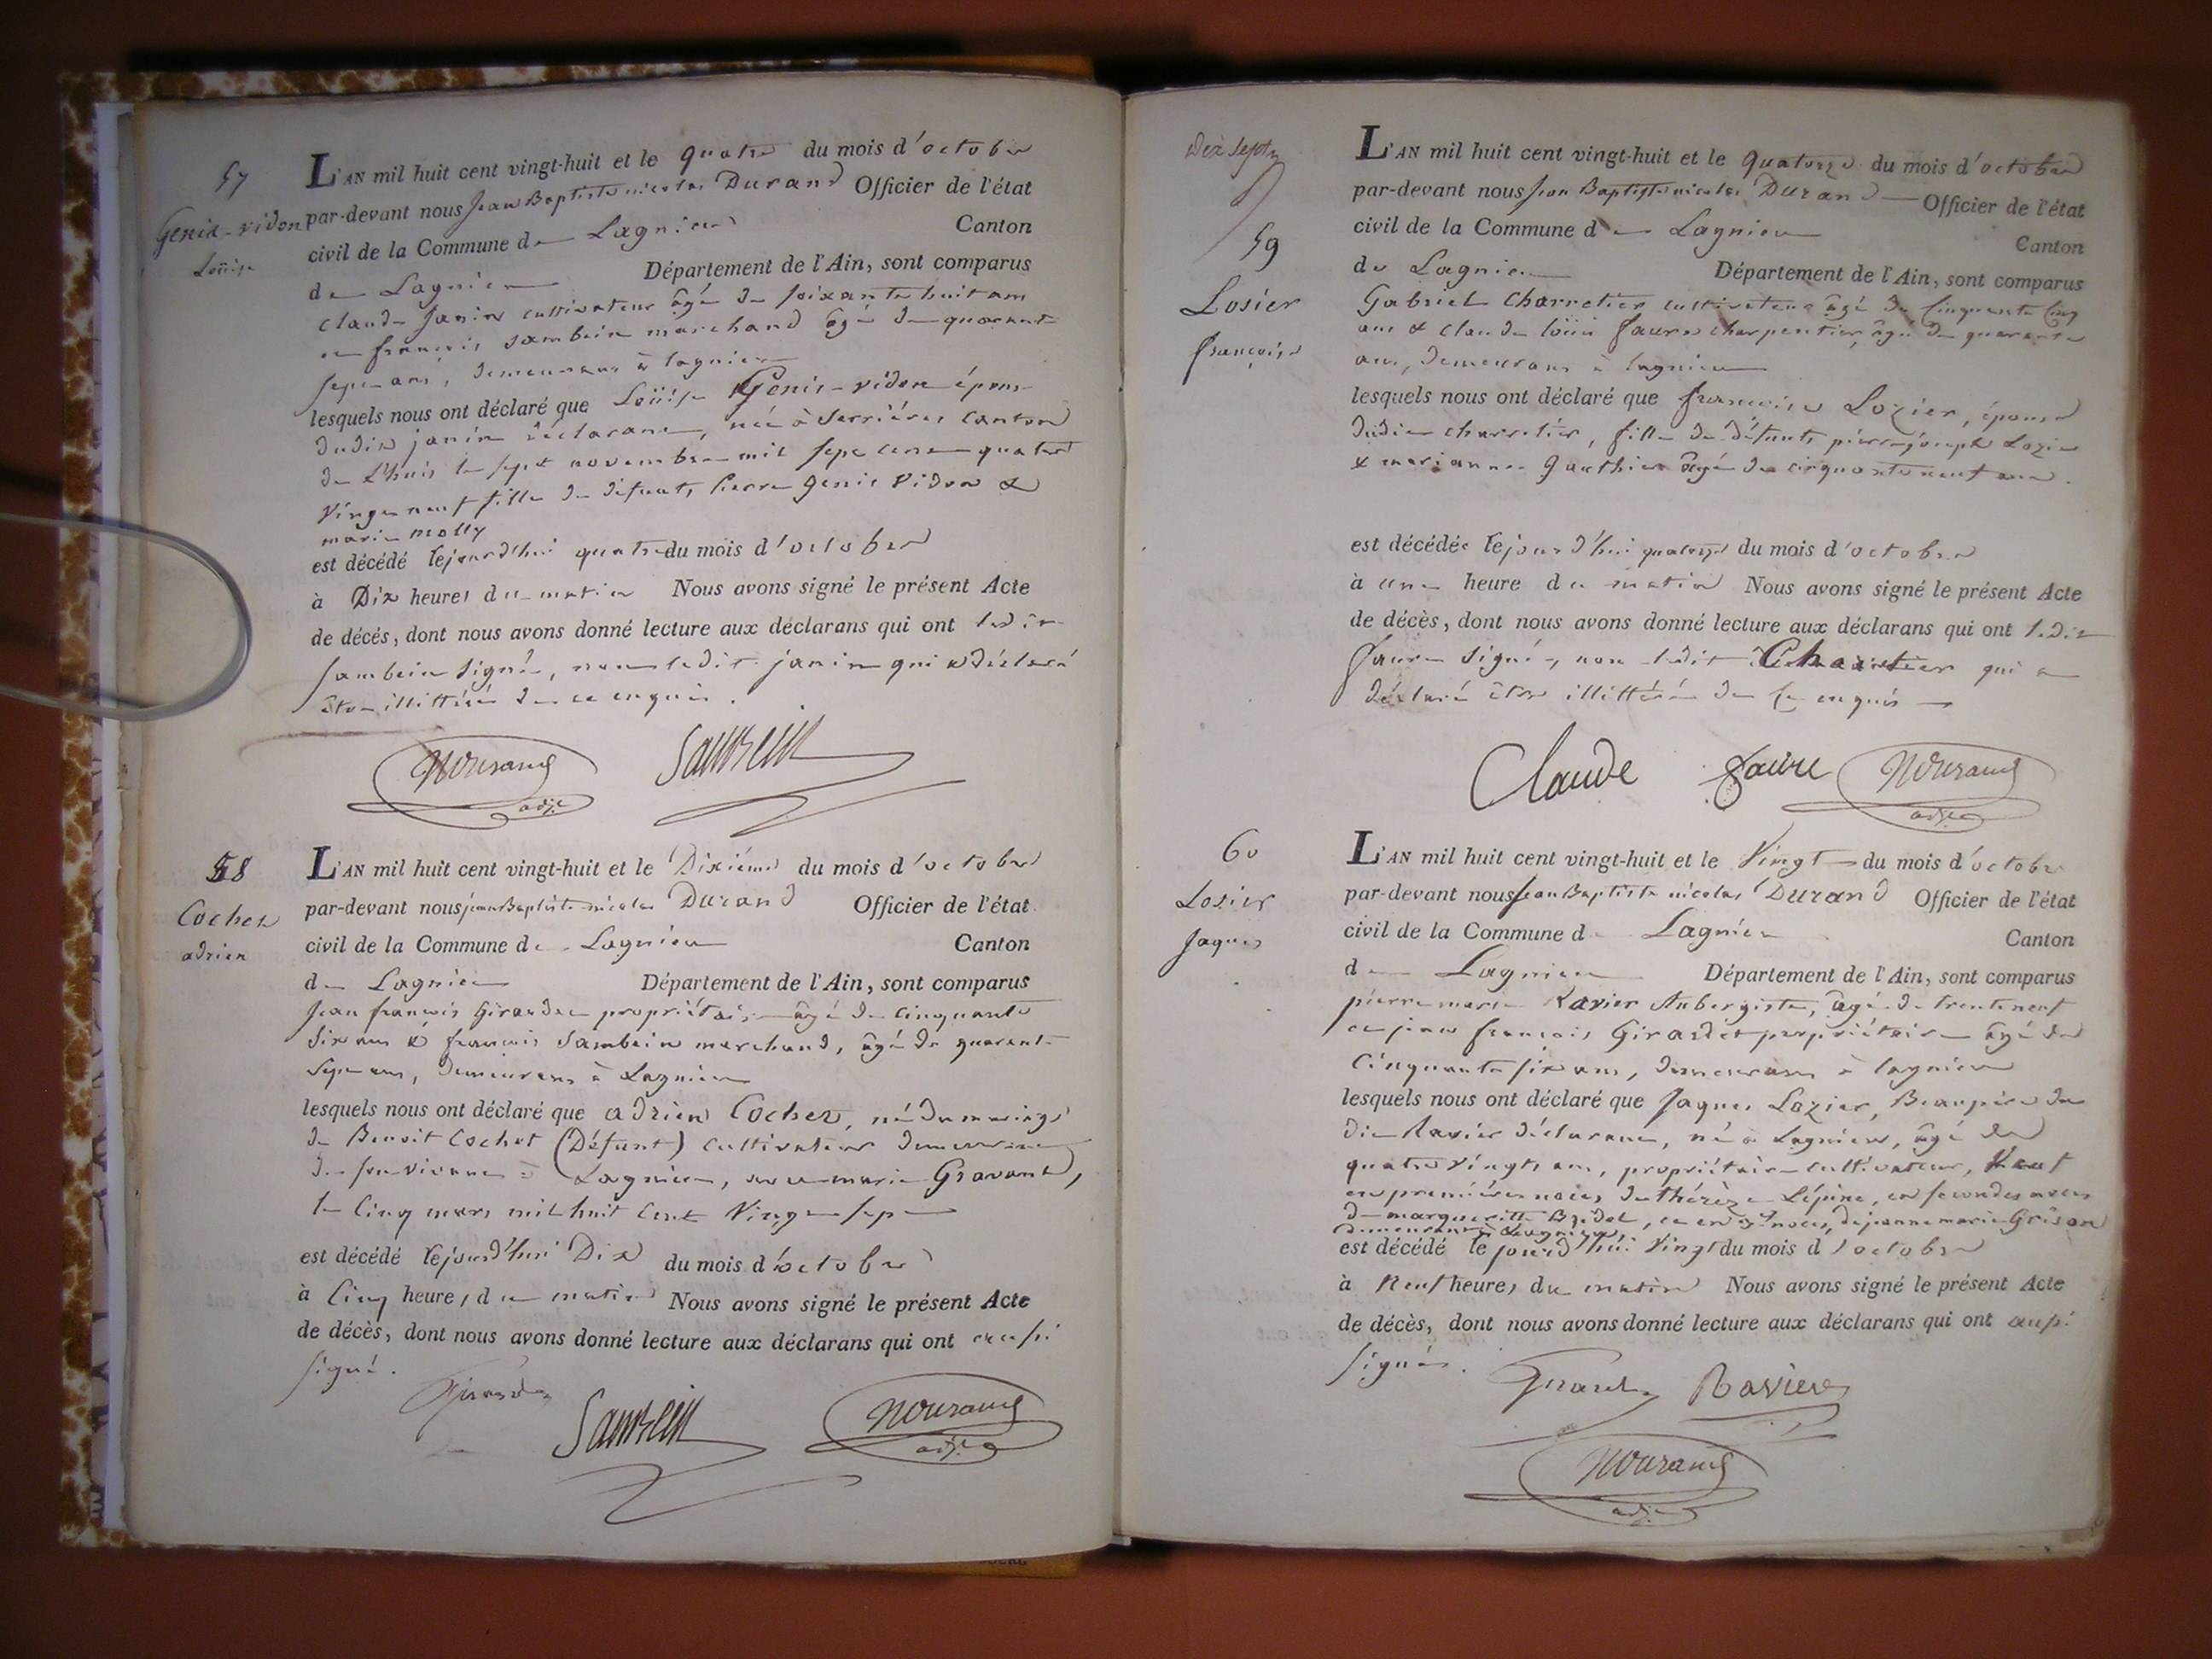 57
Genix-vidon
Loüise
L'AN mil huit cent vingt-huit et le quatre du mois d'octobre
par-devant nous Jean Baptiste nicolas Durand Officier de l'état
civil de la Commune de Lagnieu Canton
de Lagnieu Département de l'Ain, sont comparus
claude Janin cultivateur âgé de soixante huit ans
et françois sambein marchand âgé de quarante
sept ans, demeurans à lagnieu
lesquels nous ont déclaré que Loüise Genis-vidon épouse
dudit janin déclarant, née à Serrières canton
de L'huis le sept novembre mil sept cent quatre
vingt neuf fille de défunts Pierre Genis Vidon &
marie molly
est décédé le jourd'hui quatre du mois d'octobre
à Dix heures du matin Nous avons signé le présent Acte
de décés, dont nous avons donné lecture aux déclarans qui ont ledit
sambein signé, non ledit janin qui a déclaré
être illittéré de ce enquis.
NDurand
adjt
Sambein
58
Cochet
adrien
L'AN mil huit cent vingt-huit et le Dixiéme du mois d'octobre
par-devant nous jean Baptiste nicolas Durand Officier de l'état
civil de la Commune de Lagnieu Canton
de Lagnieu Département de l'Ain, sont comparus
Jean françois Girardet propriétaire âgé de cinquante
six ans & françois Sambein marchand, âgé de quarante
sept ans, demeurans à Lagnieu
lesquels nous ont déclaré que adrien Cochet, né du mariage
de Benoit Cochet (Défunt) cultivateur demeurant
de son vivant à Lagnieu, avec marie Gravant,
le Cinq mars mil huit cent Vingt sept
est décédé le jourd'hui Dix du mois d'octobre
à Cinq heures du matin Nous avons signé le présent Acte
de décès, dont nous avons donné lecture aux déclarans qui ont aussi
signé.
Girardet
Sambein
NDurand
adjt
Dix sept
59
Losier
françoise
L'AN mil huit cent vingt-huit et le quatorze du mois d'octobre
par-devant nous Jean Baptiste nicolas Durand Officier de l'état
civil de la Commune de Lagnieu Canton
de Lagnieu Département de l'Ain, sont comparus
Gabriel Charretier cultivateur âgé de Cinquante Cinq
ans & claude loüis faure charpentier, âgé de quarante
ans, demeurans à lagnieu
lesquels nous ont déclaré que françoise Lozier, épouse
dudit charretier, fille de défunts pierre joseph Lozier
& marianne Gauthier âgée de cinquante neuf ans.
est décédée le jour d'hui quatorze du mois d'octobre
à une heure du matin Nous avons signé le présent Acte
de décès, dont nous avons donné lecture aux déclarans qui ont ledit
faure signé, non ledit Charretier qui a
déclaré être illittéré de ce enquis
Claude faure NDurand
adjt
60
Losier
Jaques
L'AN mil huit cent vingt-huit et le Vingt du mois d'octobre
par-devant nous Jean Baptiste nicolas Durand Officier de l'état
civil de la Commune de Lagnieu Canton
de Lagnieu Département de l'Ain, sont comparus
pierre marie Ravier Aubergiste, âgé de trente neuf
et jean françois Girardet propriétaire âgé de
Cinquante six ans, demeurans à lagnieu
lesquels nous ont déclaré que Jaques Lozier, Beaupère du
dit Ravier déclarant, né à Lagnieu, âgé de
quatre vingts ans, propriétaire cultivateur, Veuf
en premières noces de thérèze Lépine, en secondes noces
de margueritte Bridet, et en 3es noces, de jeanne marie Grison
demeurant à Lagnieu,
est décédé le jourd'hui Vingt du mois d'octobre
à Neuf heures du matin Nous avons signé le présent Acte
de décès, dont nous avons donné lecture aux déclarans qui ont aussi
signés.
Girardet Ravier
NDurand
adjt